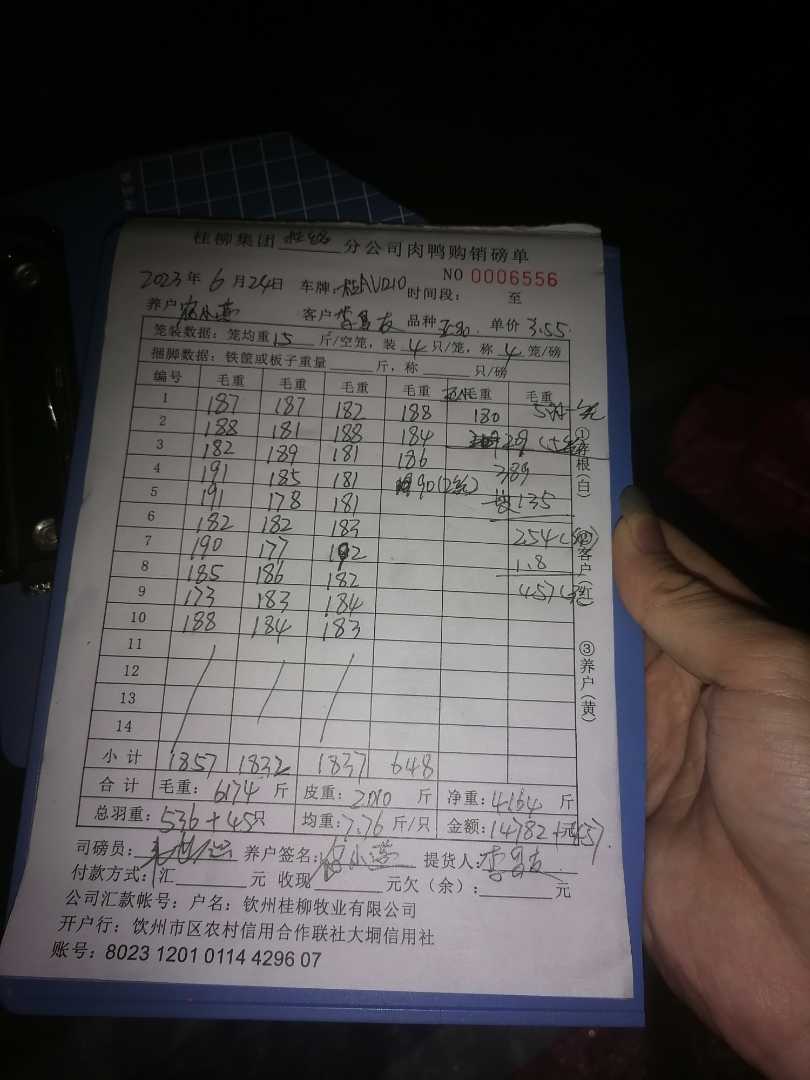 桂柳集团 分公司肉鸭购销磅单
NO 0006556
2023年 6月24日 车牌: 桂AU210 时间段: 至
养户 客户 李昌友 品种 单价 3.55
笼装数据: 笼均重 15 斤/空笼, 装 4 只/笼, 称 4 笼/磅
捆脚数据: 铁筐或板子重量 斤, 称 只/磅
编号 毛重 毛重 毛重 毛重 毛重 毛重
1 187 187 182 188 180
2 188 181 188 184
3 182 189 181 186 389
4 191 185 181 90 135
5 191 178 181
6 182 182 183 254
7 190 177 192 1.8
8 185 186 182 457
9 173 183 184
10 188 184 183
11
12
13
14
小计 1857 1832 1837 648
合计 毛重: 6174 斤 皮重: 2010 斤 净重: 4164 斤
总羽重: 536+45只 均重: 7.76 斤/只 金额: 14782+元457
司磅员: 养户签名: 提货人: 李昌友
付款方式: 汇 元 收现 元欠(余): 元
公司汇款帐号: 户名: 钦州桂柳牧业有限公司
开户行: 钦州市区农村信用合作联社大垌信用社
账号: 8023 1201 0114 4296 07
①存根(白)
②客户(红)
③养户(黄)